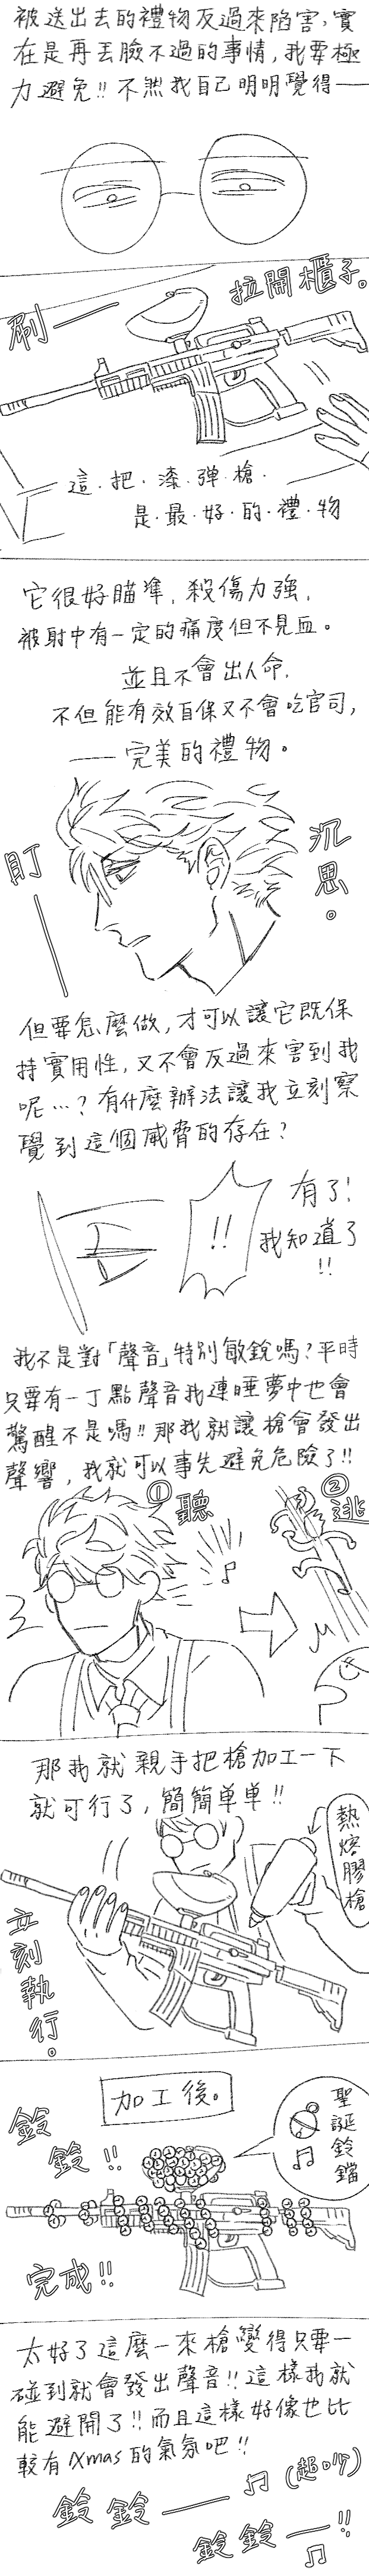 被送出去的禮物反過來陷害，實
在是再丟臉不過的事情，我要極
力避免!! 不然我自己明明覺得——
刷——
拉開櫃子。
這．把．漆．彈．槍．
是．最．好．的．禮．物
它很好瞄準，殺傷力強，
被射中有一定的痛度但不見血。
並且不會出人命，
不但能有效自保又不會吃官司，
——完美的禮物。
盯——
沉思。
但要怎麼做，才可以讓它既保
持實用性，又不會反過來害到我
呢…？有什麼辦法讓我立刻察
覺到這個威脅的存在？
!!
有了！
我知道了
!!
我不是對「聲音」特別敏銳嗎？平時
只要有一丁點聲音我連睡夢中也會
驚醒不是嗎!! 那我就讓槍會發出
聲響，我就可以事先避免危險了!!
①聽
②逃
那我就親手把槍加工一下
就可行了，簡簡單單!!
熱熔膠槍
立刻執行。
加工後。
鈴鈴!!
聖誕鈴鐺
完成!!
太好了這麼一來槍變得只要一
碰到就會發出聲音!! 這樣我就
能避開了!! 而且這樣好像也比
較有Xmas的氣氛吧!!
鈴鈴——♫(超吵)
鈴鈴—!!♫